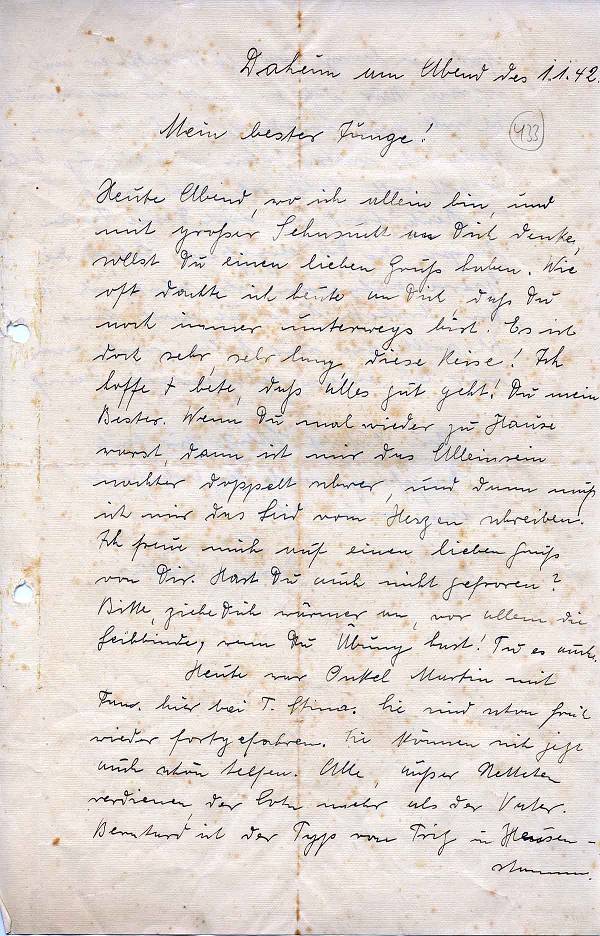 Daheim am Abend des 1.1.42.
433
Mein bester Junge!
Heute Abend, wo ich allein bin, und
mit großer Sehnsucht an Dich denke,
sollst Du einen lieben Gruß haben. Wie
oft dachte ich heute an Dich daß Du
noch immer unterwegs bist. Es ist
doch sehr, sehr lang diese Reise! Ich
hoffe + bete, daß alles gut geht! Du mein
Bester. Wenn Du mal wieder zu Hause
warst, dann ist mir das Alleinsein
nachher doppelt schwer, und dann muß
ich mir das Leid vom Herzen schreiben.
Ich freue mich auf einen lieben Gruß
von Dir. Hast Du auch nicht gefroren?
Bitte, ziehe Dich wärmer an, vor allem die
Leibbinde, wenn Du Übung hast! Tu es auch.
Heute war Onkel Martin mit
Fam. hier bei T. Stina. Sie sind schon früh
wieder fortgefahren. Sie können sich jetzt
auch schön helfen. Alle, außer
verdienen, der Sohn mehr als der Vater.
Bernhard ist der Typ von Fritz in